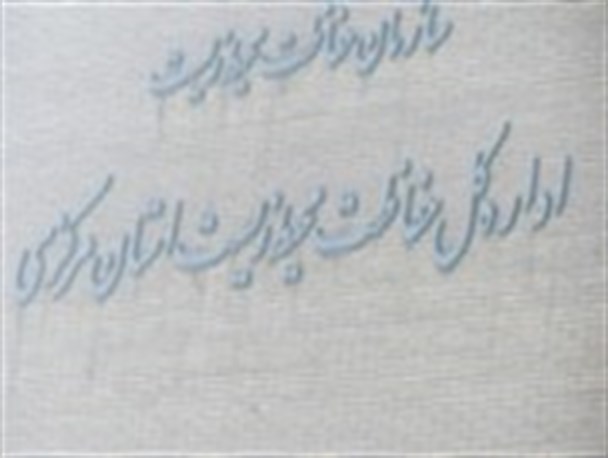 سازمان حفاظت محیط زیست
اداره کل حفاظت محیط زیست استان مرکزی